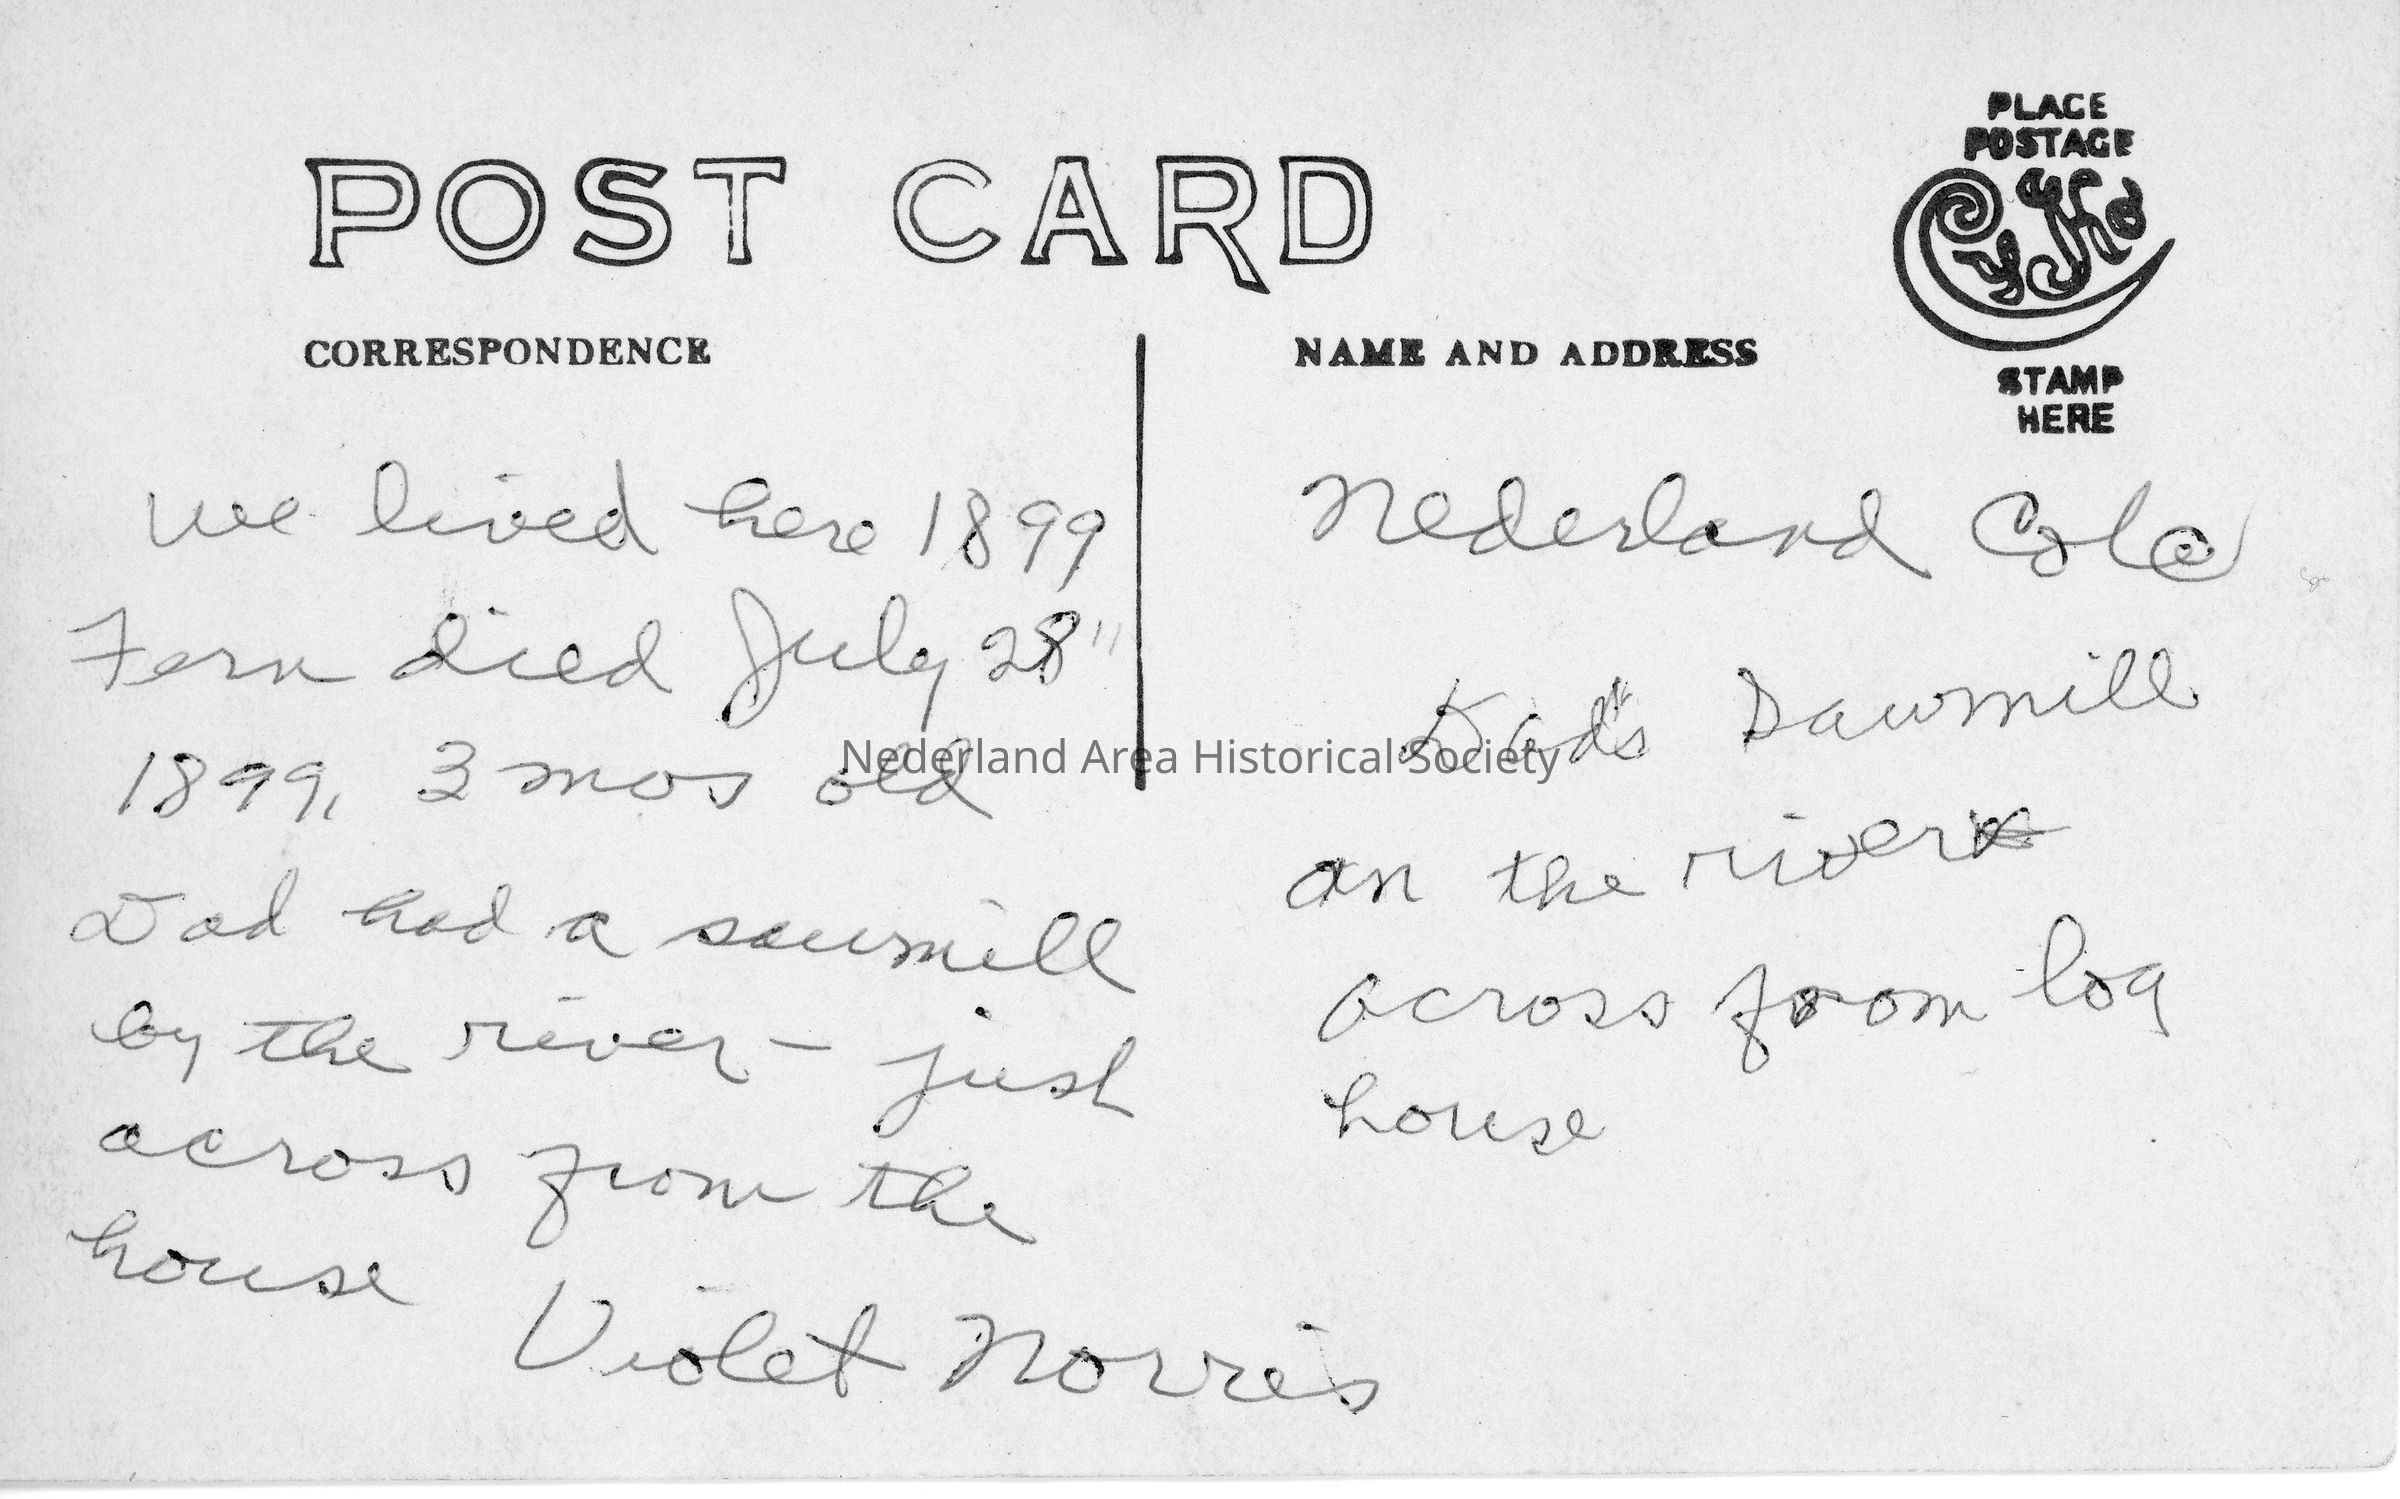 POST CARD
PLACE
POSTAGE
STAMP
HERE
CORRESPONDENCE
we lived here 1899
Fern died July 28"
1899, 3 mos old
Dad had a sawmill
by the river — just
across from the
house
Violet Norris
NAME AND ADDRESS
Nederland Colo
Sawmill
on the river
across from log
house
Nederland Area Historical Society